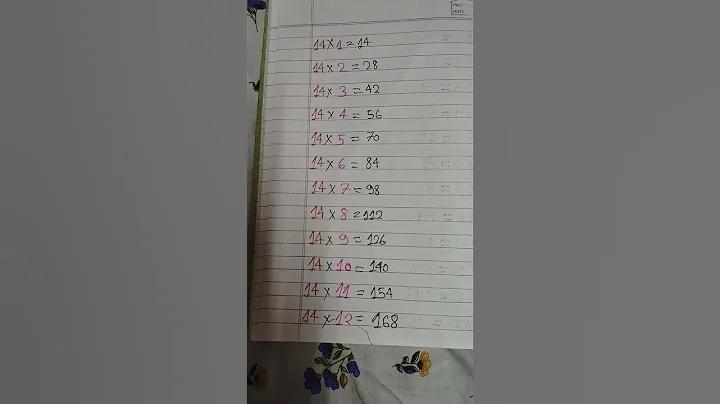 14 × 1 = 14
14 × 2 = 28
14 × 3 = 42
14 × 4 = 56
14 × 5 = 70
14 × 6 = 84
14 × 7 = 98
14 × 8 = 112
14 × 9 = 126
14 × 10 = 140
14 × 11 = 154
14 × 12 = 168